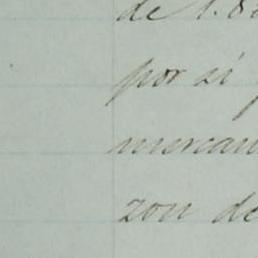 de 1.8
por si
mercan
zon de